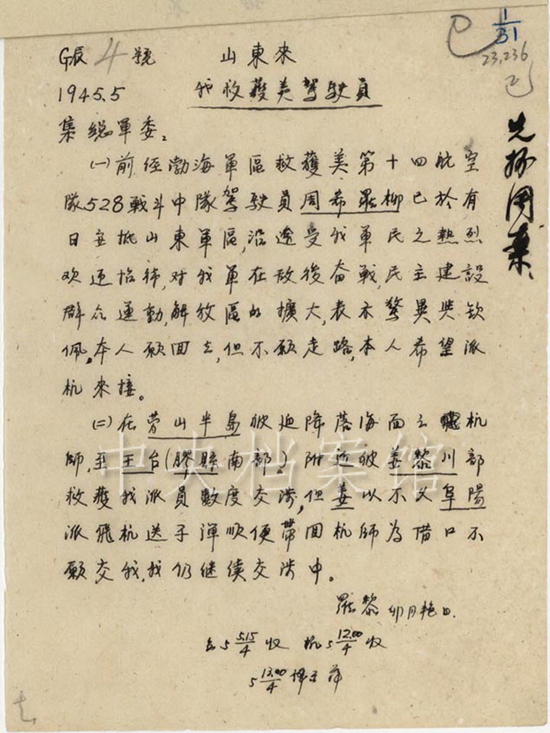 1/31
23,236
G辰 4 號 山東來
1945.5 我救獲美駕駛員
集總軍委:
(一)前經渤海軍區救獲美第十四航空
隊528戰斗中隊駕駛員周希羅柳已於有
日安抵山東軍區,沿途受我軍民之熱烈
欢迎恰待,对我軍在敌後奋戰,民主建設
群众運動,解放區的擴大,表示驚異與欽
佩。本人願回去,但不願走路,本人希望派
机來接。
(二)在劳山半島被迫降落海面之机
師,至王台(膠縣南部)附近被姜黎川部
救獲我派員數度交涉,但姜以不久阜陽
派飛机送子渾順便帶回机師為借口不
願交我,我仍继续交涉中。
羅黎 卯月艳日
5 5.15/4 收 机5 12.00/4 收
5 13.00/4
中央档案馆